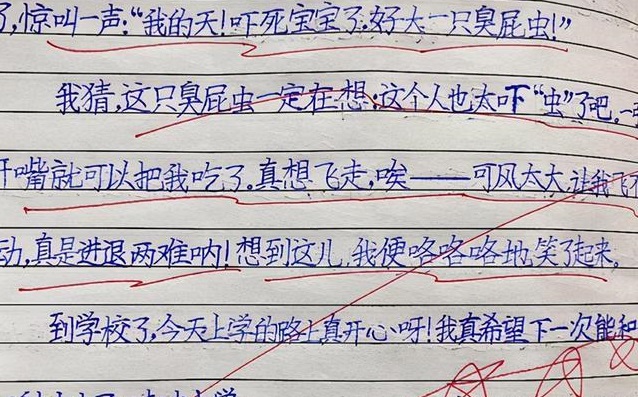 了,惊叫一声:“我的天!吓死宝宝了,好大一只臭屁虫!”
我猜,这只臭屁虫一定在想:这个人也太吓“虫”了吧,一
嘴就可以把我吃了。真想飞走,唉——可风太大,让我飞不
动,真是进退两难呐!想到这儿,我便咯咯咯地笑了起来。
到学校了,今天上学的路上真开心呀!我真希望下一次能和